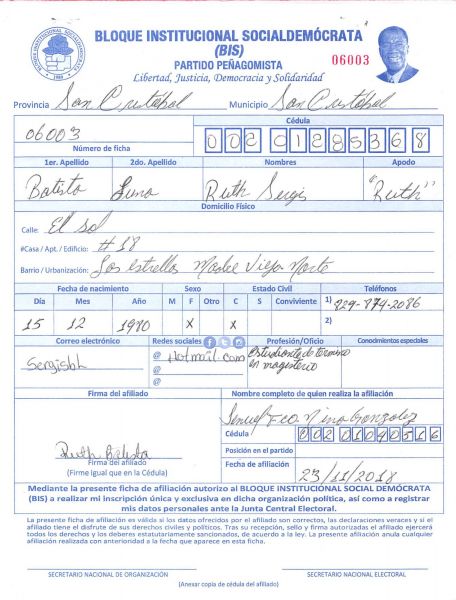 BLOQUE INSTITUCIONAL SOCIALDEMÓCRATA
(BIS)
PARTIDO PEÑAGOMISTA
06003
Libertad, Justicia, Democracia y Solidaridad
Provincia San Cristóbal Municipio San Cristóbal
Cédula
06003
00201285368
Número de ficha
1er. Apellido 2do. Apellido Nombres Apodo
Batista Luna Ruth Sergis "Ruth"
Domicilio Físico
Calle: El sol
#Casa / Apt. / Edificio: #18
Barrio / Urbanización: Las estrellas Madre Vieja Norte
Fecha de nacimiento Sexo Estado Civil Teléfonos
Día Mes Año M F Otro C S Conviviente 1) 829-874-2086
15 12 1980 X X 2)
Correo electrónico Redes sociales Profesión/Oficio Conocimientos especiales
Sergisbl @ Hotmail.com estudiante de termino
@ en magisterio
@
Firma del afiliado Nombre completo de quien realiza la afiliación
Fco. Nina Gonzalez
Cédula 00201090516
Ruth Batista
Firma del afiliado
(Firme igual que en la Cédula)
Posición en el partido
Fecha de afiliación 23/11/2018
Mediante la presente ficha de afiliación autorizo al BLOQUE INSTITUCIONAL SOCIAL DEMÓCRATA
(BIS) a realizar mi inscripción única y exclusiva en dicha organización política, así como a registrar
mis datos personales ante la Junta Central Electoral.
La presente ficha de afiliación es válida si los datos ofrecidos por el afiliado son correctos, las declaraciones veraces y si el
afiliado tiene el disfrute de sus derechos civiles y políticos. Tras su recepción, sello y firma autorizadas el afiliado ejercerá
todos los derechos y los deberes estatutariamente sancionados, de acuerdo a la ley. La presente afiliación anula cualquier
afiliación realizada con anterioridad a la fecha que aparece en esta ficha.
SECRETARIO NACIONAL DE ORGANIZACIÓN SECRETARIO NACIONAL ELECTORAL
(Anexar copia de cédula del afiliado)